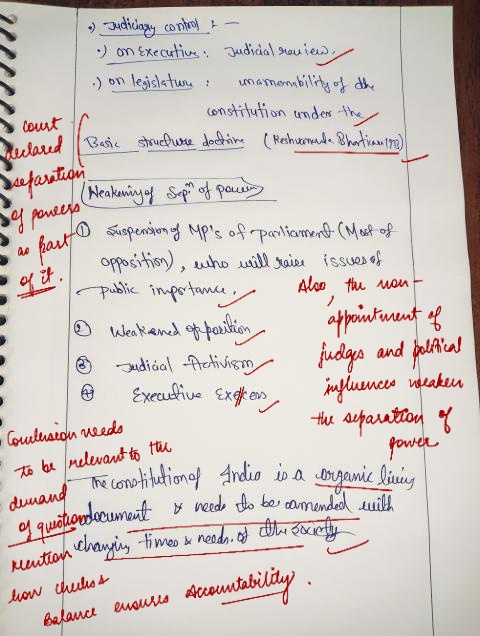 •) Judiciary control : —
•) on Executive : Judicial review.
•) on legislature : unamenability of the
constitution under the
Basic structure doctrine (Keshvananda Bharti case 1973)
Court
declared
separation
of powers
as part
of it.
Weakening of Sepⁿ of power
① Suspension of MP's of Parliament (Most of
opposition), who will raise issues of
public importance.
② Weakened opposition
③ Judicial Activism
④ Executive Excess
Also, the non-
appointment of
judges and political
influences weaken
the separation of
power
Conclusion needs
to be relevant to the
demand
of question
Mention
how checks
Balance ensures Accountability.
The constitution of India is a organic living
document & needs to be amended with
changing times & needs of the society